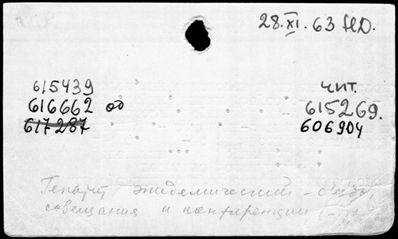 28.XI.63
615439
616662 оо
617287
чит.
615269.
606904
эпидемический -
совещания и конференции